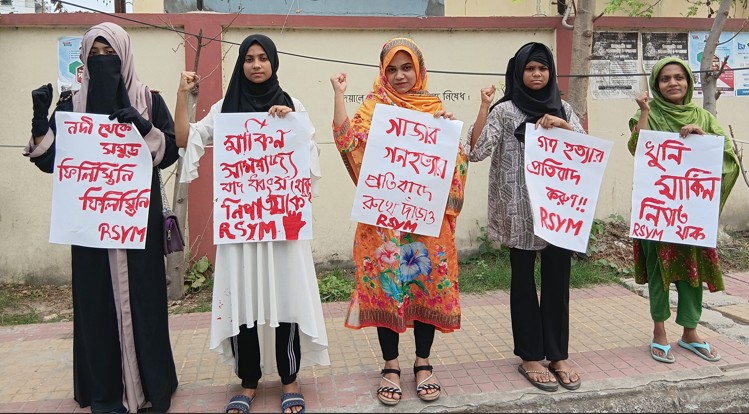 নদী থেকে
সমুদ্র
ফিলিস্তিনি
ফিলিস্তিনি
RSYM
মার্কিন
সাম্রাজ্য
বাদ ধ্বংস হোক
নিপাত যাক
RSYM
গাজার
গনহত্যার
প্রতিবাদে
রুখে দাঁড়াও
RSYM
গণ হত্যার
প্রতিবাদ
করুণ!!
RSYM
খুনি
মার্কিন
নিপাত
যাক
RSYM
নিষেধ।